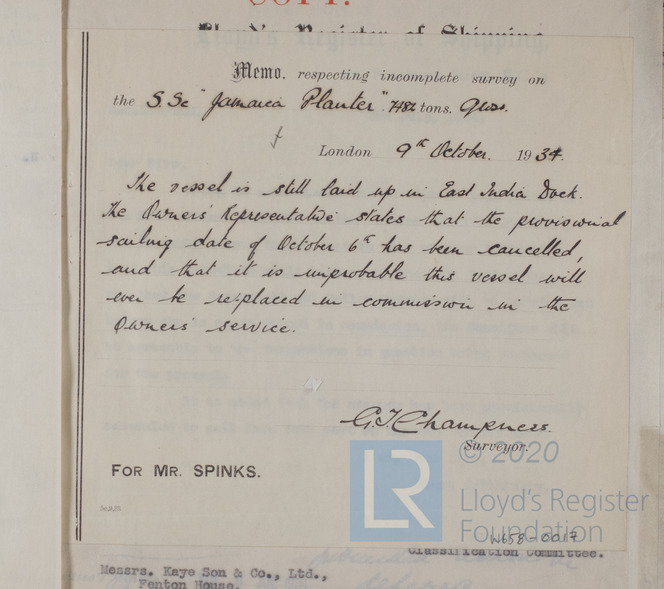 COPY.
Lloyd's Register of Shipping.
Memo. respecting incomplete survey on
the S.Sc "Jamaica Planter" 7482 tons. Gross.
London 9th October. 1934.
The vessel is still laid up in East India Dock.
The Owners' Representative states that the provisional
sailing date of October 6th has been cancelled,
and that it is improbable this vessel will
ever be replaced in commission in the
Owners' service.
G.T. Champness.
Surveyor.
© 2020
FOR MR. SPINKS.
LR
Lloyd's Register
Foundation
W658-0017
Classification Committee.
Messrs. Kaye Son & Co., Ltd.,
Fenton House.